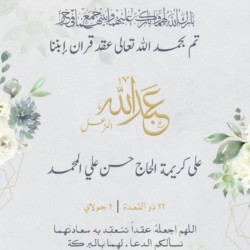 بارك الله لهما وبارك عليهما وجمع بينهما في خير
تم بحمد الله تعالى عقد قران إبننا
عبدالله
على كريمة الحاج حسن علي المحمد
٢٢ ذو القعدة | ٢ جولاي
اللهم اجعله عقداً تنعقد به سعادتهما
نسألكم الدعاء لهما بالبركة